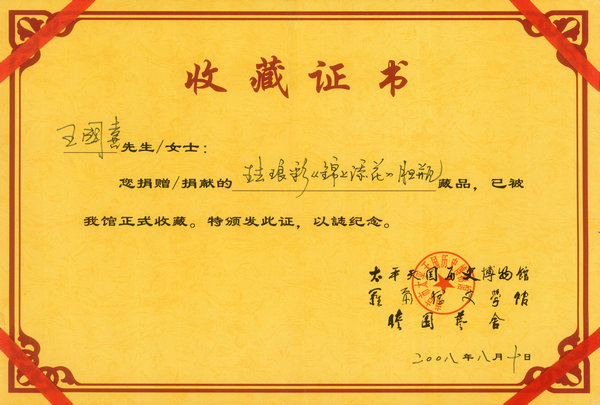 收藏证书
王国熹先生/女士：
您捐赠/捐献的珐琅彩《锦上添花》胆瓶藏品，已被
我馆正式收藏。特颁发此证，以誌纪念。
太平天国历史博物馆
罗尔纲文学馆
瞻园茶会
二00八年八月十日